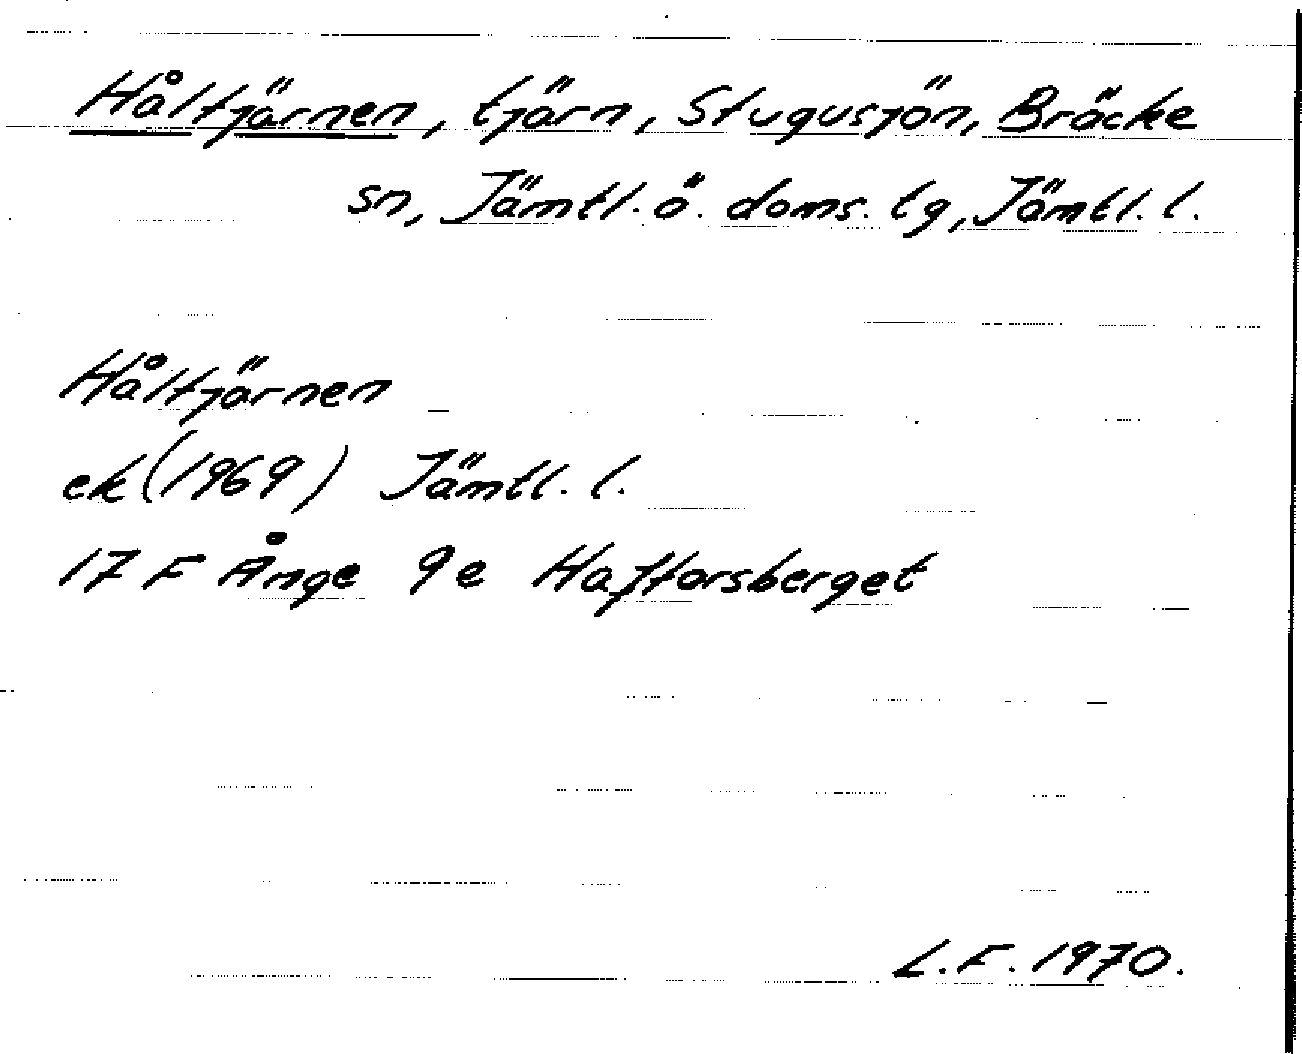 Håltjärnen, tjärn, Stugusjön, Bräcke
sn, Jämtl. ö. doms. tg, Jämtl. l.
Håltjärnen
ek (1969) Jämtl. l.
17 F Ånge 9e Haftorsberget
L.F. 1970.